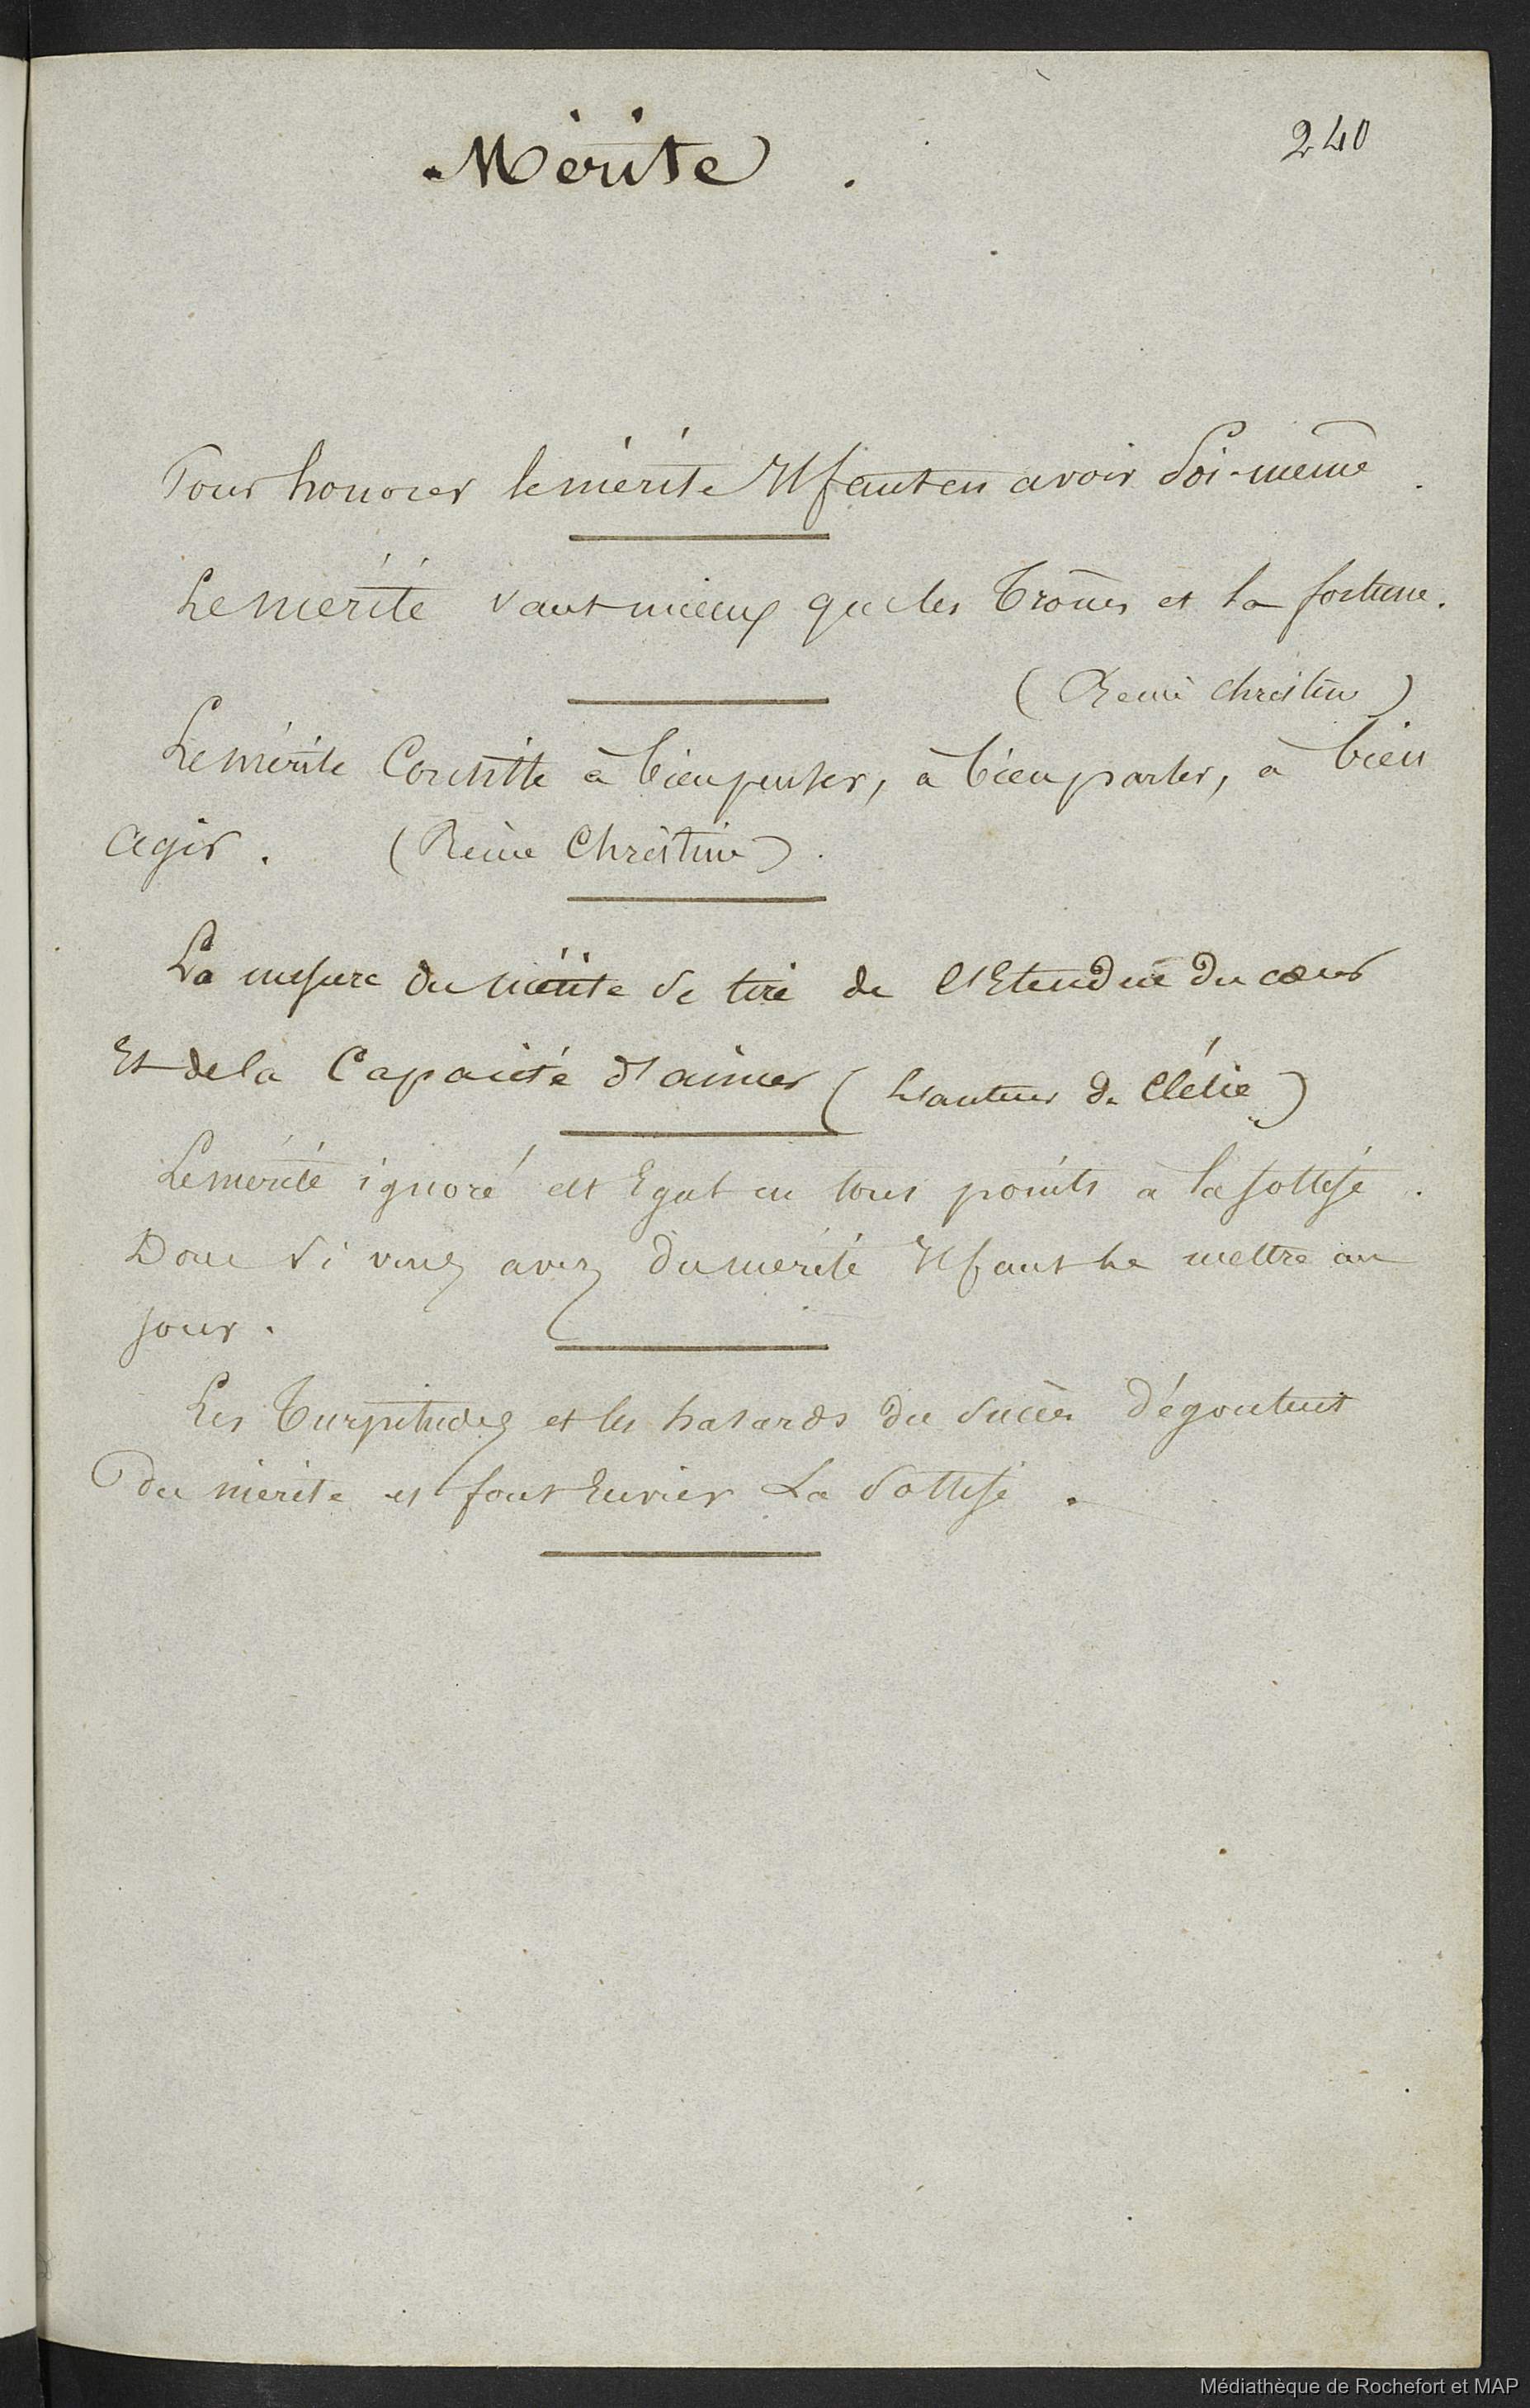 240
Mérite.
Pour honorer le mérite Il faut en avoir Soi-même.
Le mérite vaut mieux que les Trônes et la fortune.
(Reine Christine)
Le mérite Consiste à bien penser, à bien parler, à bien
agir. (Reine Christine).
La mesure du mérite se tire de l'Etendue du cœur
Et de la Capacité d'aimer (L'auteur de Clélie)
Le mérite ignoré est Egal en tous points à la sottise.
Donc si vous avez du mérite Il faut le mettre au
jour.
Les Turpitudes et les hasards du succès dégoutent
du mérite et font Envier La Sottise.
Médiathèque de Rochefort et MAP